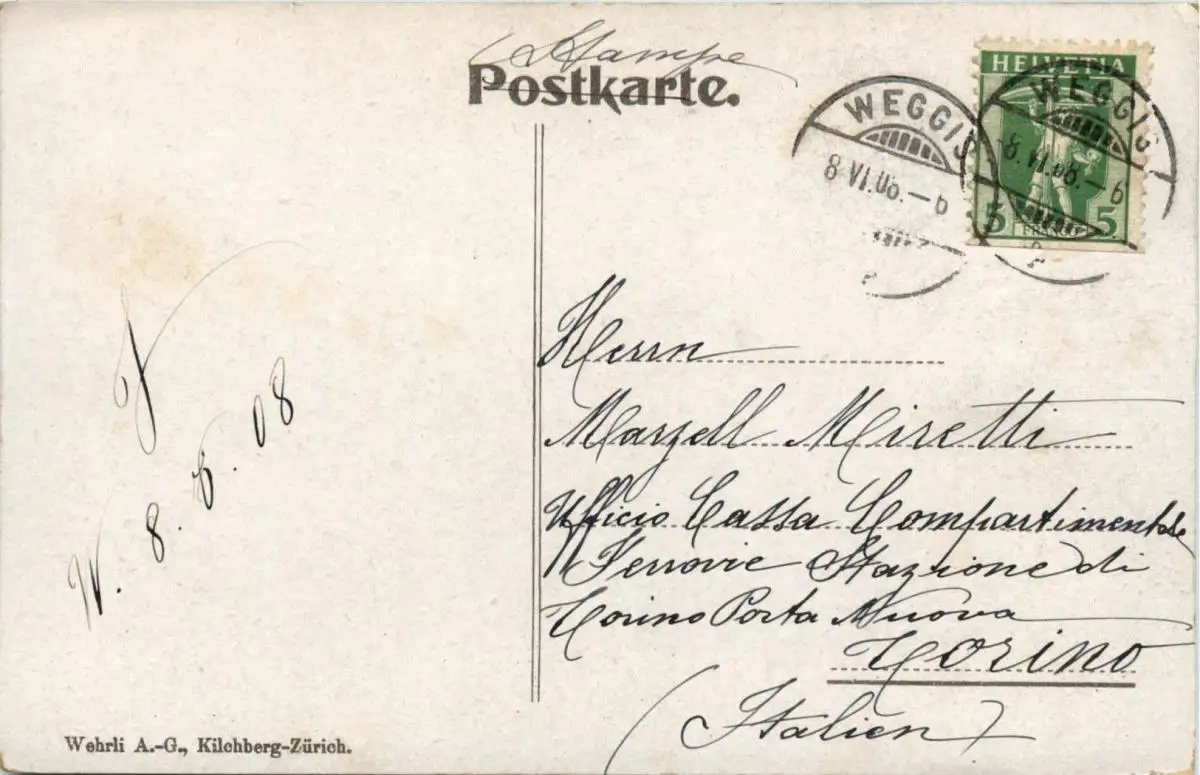 (Stampe
Postkarte.
HELVETIA
WEGGIS
8.VI.08.–6
WEGGIS
8.VI.08.–6
5 5
Herrn
Marzell Miretti
Ufficio Cassa Compartimentale
Ferrovie Stazione di
Torino Porta Nuova
Torino
(Italien)
W. 8. 6. 08
Wehrli A.-G., Kilchberg-Zürich.